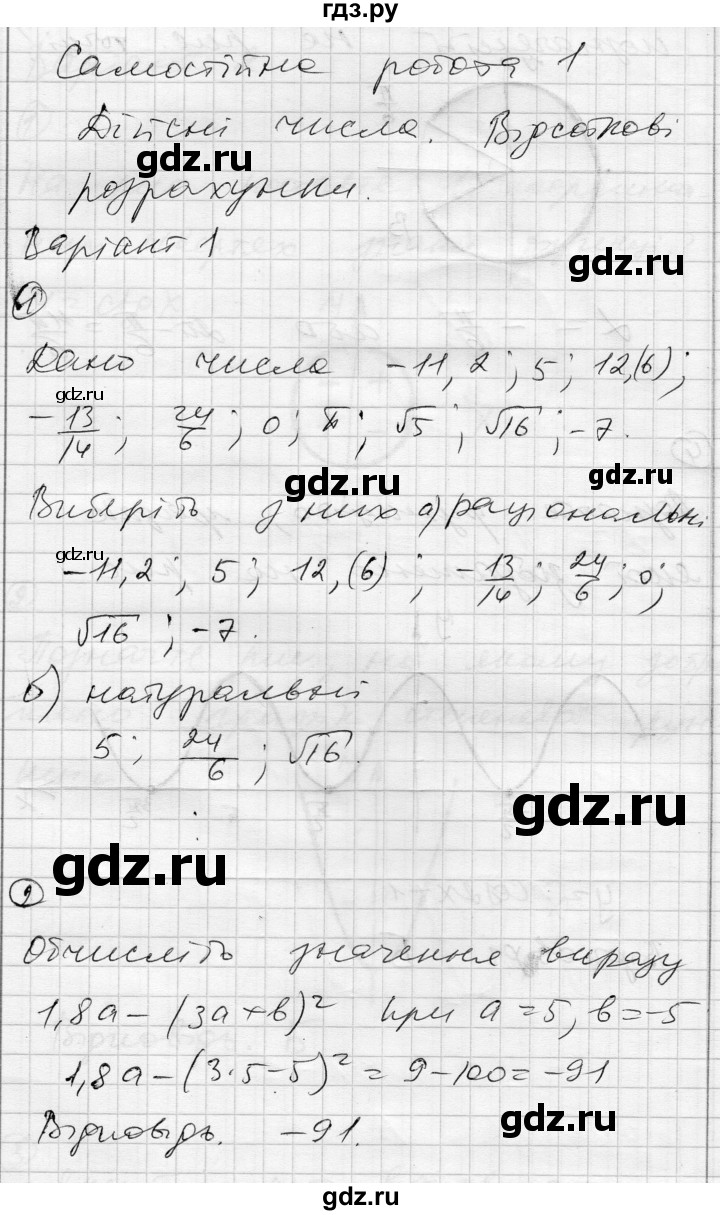 гдз.ру
Самостійна робота 1
Дійсні числа. Відсоткові
gdz.ru
розрахунки.
Варіант 1
gdz.ru
1
Дано числа -11,2; 5; 12,(6);
gdz.ru
-13/14; 24/6; 0; π; √5; √16; -7.
gdz.ru
Виберіть з них а) раціональні
gdz.ru
-11,2; 5; 12,(6); -13/14; 24/6; 0;
√16; -7.
б) натуральні
5; 24/6; √16.
gdz.ru
gdz.ru
2
Обчисліть значення виразу
1,8a-(3a+b)² при a=5, b=-5
1,8a-(3·5-5)²=9-100=-91
gdz.ru
Відповідь. -91.
gdz.ru